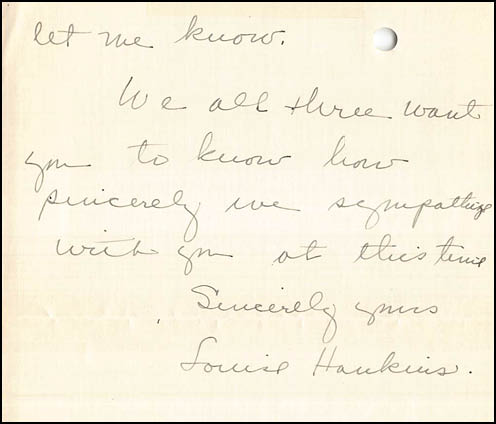 let me know.
We all three want
you to know how
sincerely we sympathize
with you at this time
Sincerely yours
Louise Hankins.